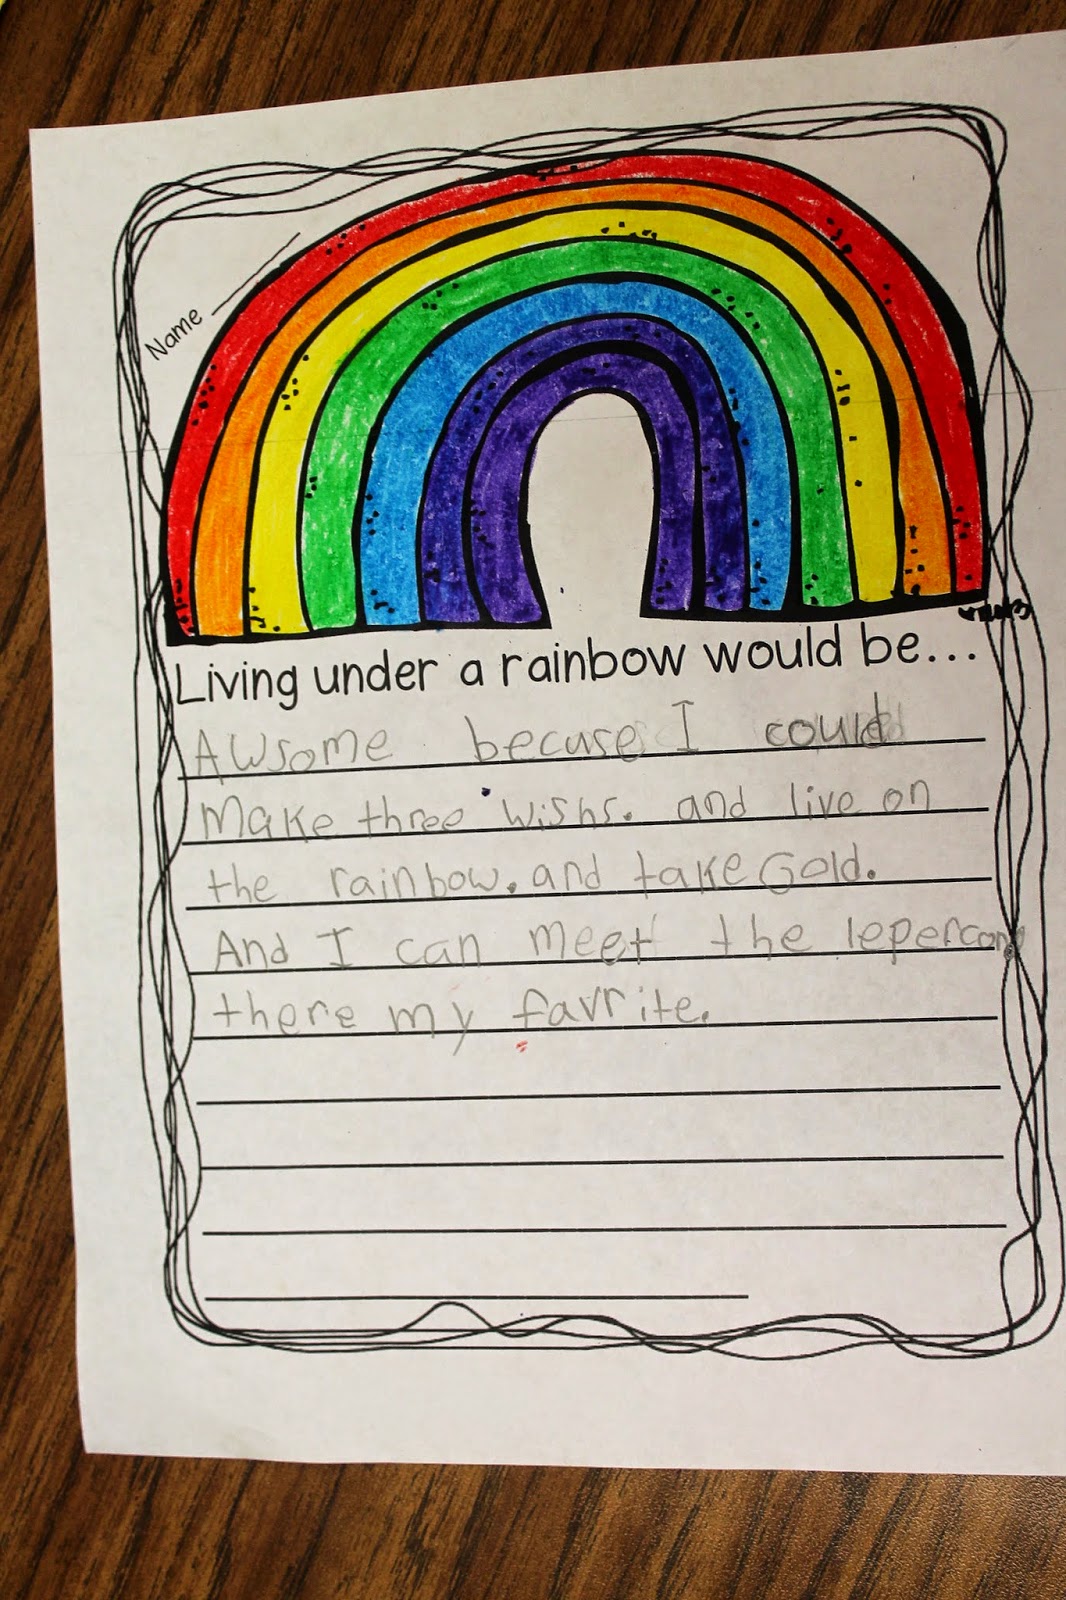 Name
Living under a rainbow would be...
Awsome becuse I could
make three wishs. and live on
the rainbow. and take Gold.
And I can meet the lepercons
there my favrite.